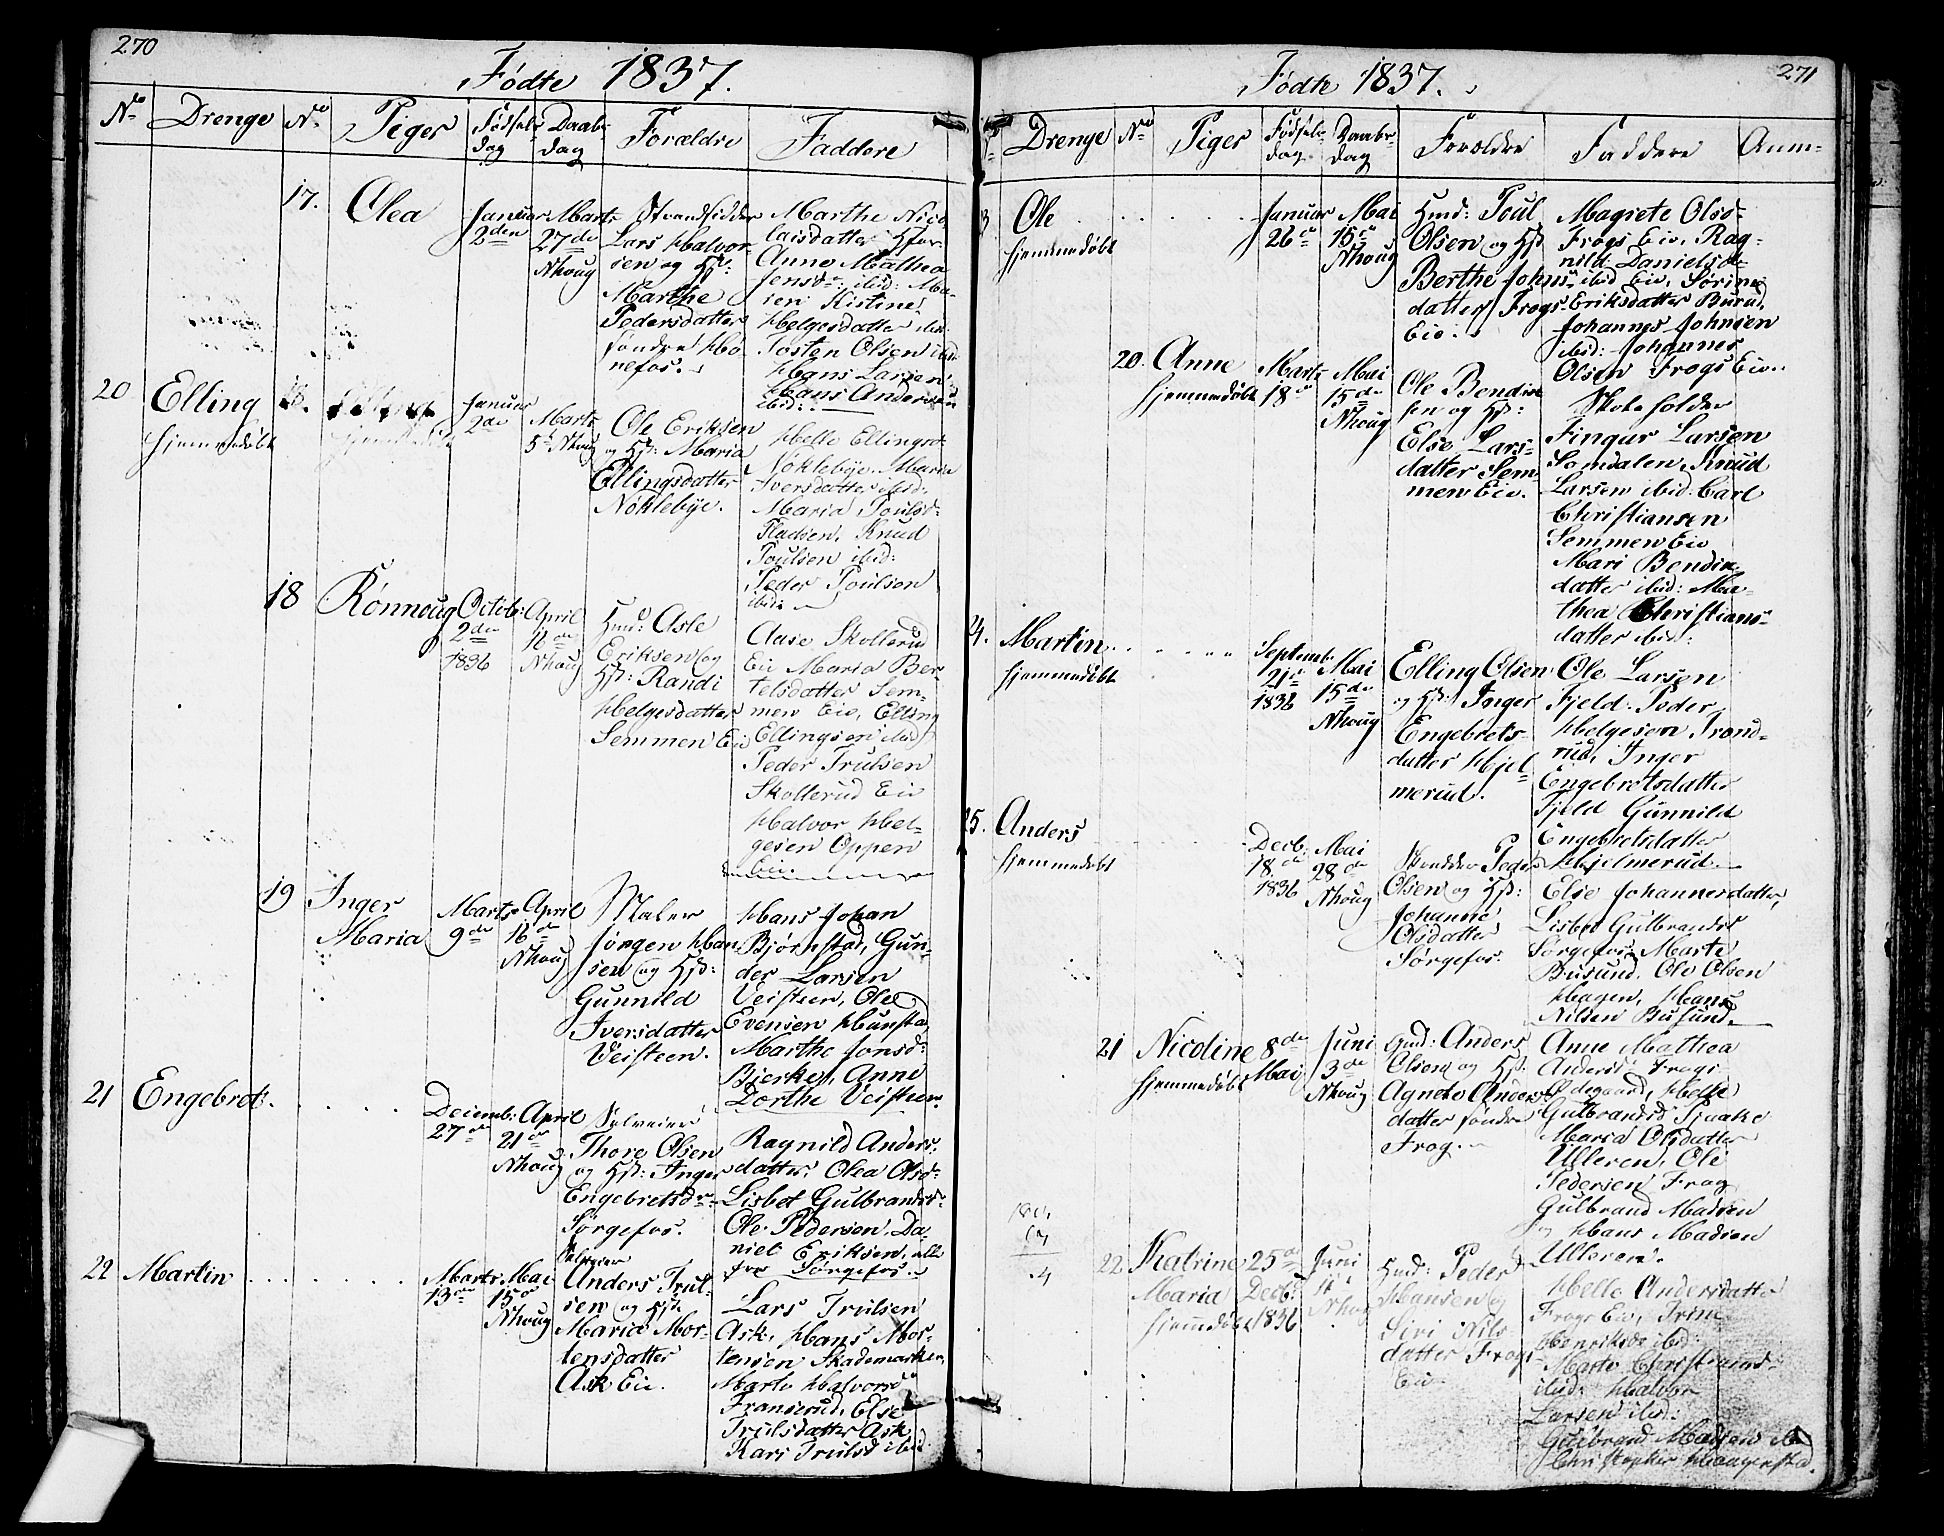 270
Fødte 1837.
No Drenge No Piger Fødsels dag Daabs dag Forældre Faddere
17. Olea
Januar
2den
Marts
27de
Nhoug
Strandsidder
Lars Halvor-
sen og Hst:
Marthe
Pedersdatter
søndre Hø
nefos.
Marthe Nico
laisdatter Hfos.
Anne Mathea
Jensdr: ibid: Ma-
ren Kistine
Helgesdatter ibid:
Tosten Olsen ibid
Hans Larsen
Hans Andersen
ibid:
20 Elling
hjemmedøbt
Januar
2de
Marts
5te Nhoug
Ole Eriksen
og Hst: Maria
Ellingsdatter
Nøklebye.
Helle Ellingsd:
Nøklebye. Maria
Iversdatter ibid:
Maria Poulsd:
Pladsen, Knud
Poulsen ibid:
Peder Poulsen
ibid:
18 Rønnoug
Octob:
2den
1836
April
12de
Nhoug
Hmd: Asle
Eriksen og
Hst: Randi
Helgesdatter
Semmen Eie
Aase Skollerud
Eie Maria Ber-
telsdatter Sem-
men Eie, Elling
Ellingsen ibid
Peder Trulsen
Skollerud Eie
Halvor Hel-
gesen Oppen
Eie.
19 Inger
Maria
Marts
9de
April
16de
Nhoug
Maler
Jørgen Han
sen og Hst:
Gunnild
Iversdatter
Veisteen.
Hans Johan
Bjørnstad, Gun-
der Larsen
Veisteen, Ole
Evensen Hunstad
Marthe Jonsd:
Bjerke, Anne
Dorthe Veisteen.
21 Engebret.
Decemb:
27de
April
21de
Nhoug
Selveier
Thore Olsen
og Hst: Inger
Engebretsdr
Sørgefos.
Ragnild Anders-
datter, Olea Olsd:
Lisbet Gulbrandsd:
Ole Pedersen, Da-
niel Eriksen, alle
fra Sørgefos.
22 Martin
Marts
13de
Mai
15de
Nhoug
Selveier
Anders Trul-
sen og Hst:
Maria Mor-
tensdatter
Ask Eie.
Lars Trulsen
Ask, Hans Mor-
tensen Skademarken,
Marte Halvorsd
Franserud, Else
Trulsdatter Ask
Kari Trulsd ibid
271
Fødte 1837.
Drenge No Piger Fødsels dag. Daabs- dag Forældre Faddere Anm-
3 Ole
hjemmedøbt
Januar
26de
Mai
15de
Nhoug
Hmd: Poul
Olsen og Hst
Berthe Johns
datter Frogs
Eie.
Magrete Olsd-
Frogs Eie, Rag-
nild Danielsd-
ibid Eie, Sørine
Eriksdatter Burud,
Johannes Johnsen
ibid: Johannes
Olsen Frogs Eie.
20. Anne
hjemmedøbt
Marts
18de
Mai
15de
Nhoug
Ole Bendix
sen og Hst:
Else Lars-
datter Sem
men Eie.
Skoleholder
Fingar Larsen
Somdalen, Knud
Larsen ibid. Carl
Christiansen
Semmen Eie
Mari Bendix-
datter ibid: Ma-
thea Christians-
datter ibid:
24. Martin
hjemmedøbt
Septemb:
21de
1836
Mai
15de
Nhoug
Elling Olsen
og Hst: Inger
Engebrets-
datter Hjel-
merud.
Ole Larsen
Fjeld. Peder
Helgesen Trond-
rud, Inger
Engebretsdatter
Fjeld Gunnild
Engebretsdatter
Hjelmerud.
25. Anders
hjemmedøbt
Decb:
18de
1836
Mai
28de
Nhoug
Peder
Olsen og Hst:
Johanne
Olsdatter
Sørgefos.
Else Johannesdatter,
Lisbet Gulbrandsd
Sørgefos. Marte
Busund, Ole Olsen
Hagen, Hans
Nilsen Busund.
21 Nicoline
hjemmedøbt
8de
Mai
Juni
3de
Nhoug
Hmd: Anders
Olsen og Hst:
Agnete Anders
datter søndre
Frog.
Anne Mathea
Andersd Frogs
Ødegaard, Helle
Gulbrandsd Tjaake
Maria Olsdatter
Ulleren, Ole
Pedersen Frog
Gulbrand Madsen
og Hans Madsen
Ulleren.
22. Katrine
Maria
hjemmedøbt
25de
Decb:
1836
Juni
Nhoug
Hmd: Peder
Hansen og
Siri Nils-
datter Frogs
Eie.
Helle Andersdatter
Frogs Eie, Trine
Henriksd ibid:
Marte Christiansd.
ibid: Halvor
Larsen ibid:
Gulbrand Madsen ibid
Christopher Haugerstad.